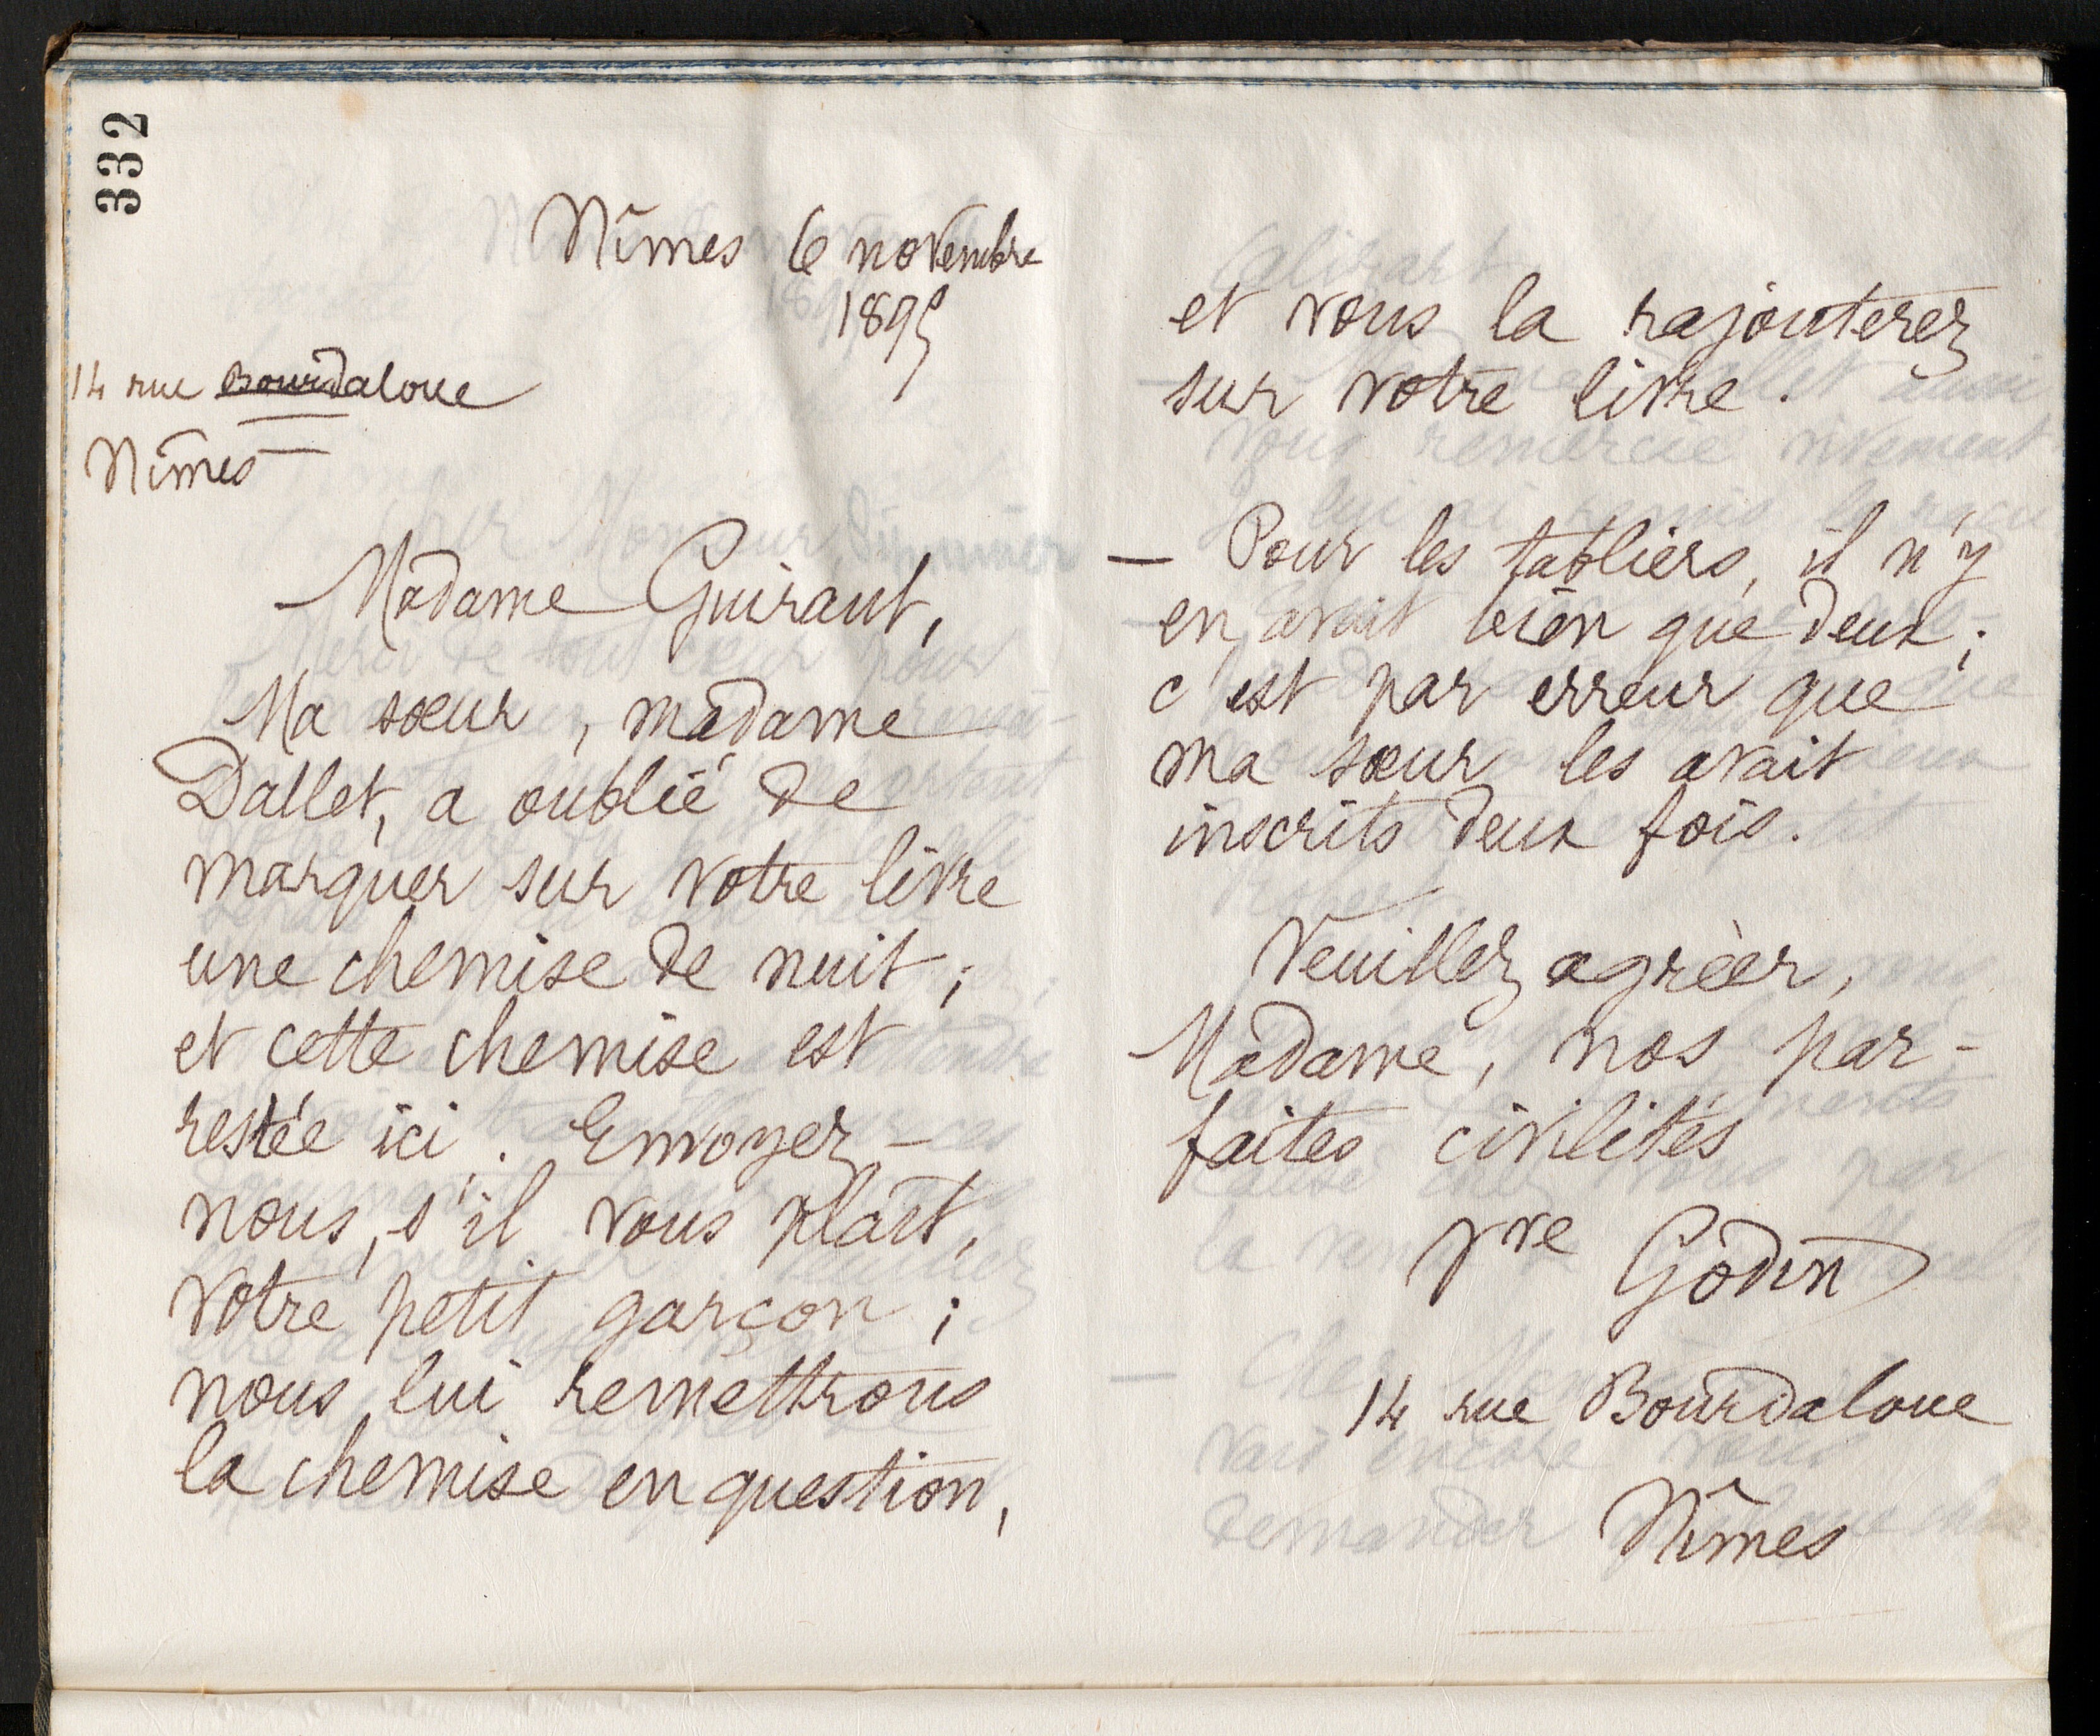 332
Nîmes 6 novembre
1895
14 rue Bourdaloue
Nîmes
Madame Guiraut,
Ma sœur, madame
Dallet, a oublié de
marquer sur votre livre
une chemise de nuit ;
et cette chemise est
restée ici. Envoyez-
nous, s'il vous plaît,
votre petit garçon ;
nous lui remettrons
la chemise en question,
et vous la rajouterez
sur votre livre.
— Pour les tabliers, il n'y
en avait bien que deux ;
c'est par erreur que
ma sœur les avait
inscrits deux fois.
Veuillez agréer,
Madame, nos par-
faites civilités
Vve Godin
14 rue Bourdaloue
Nîmes